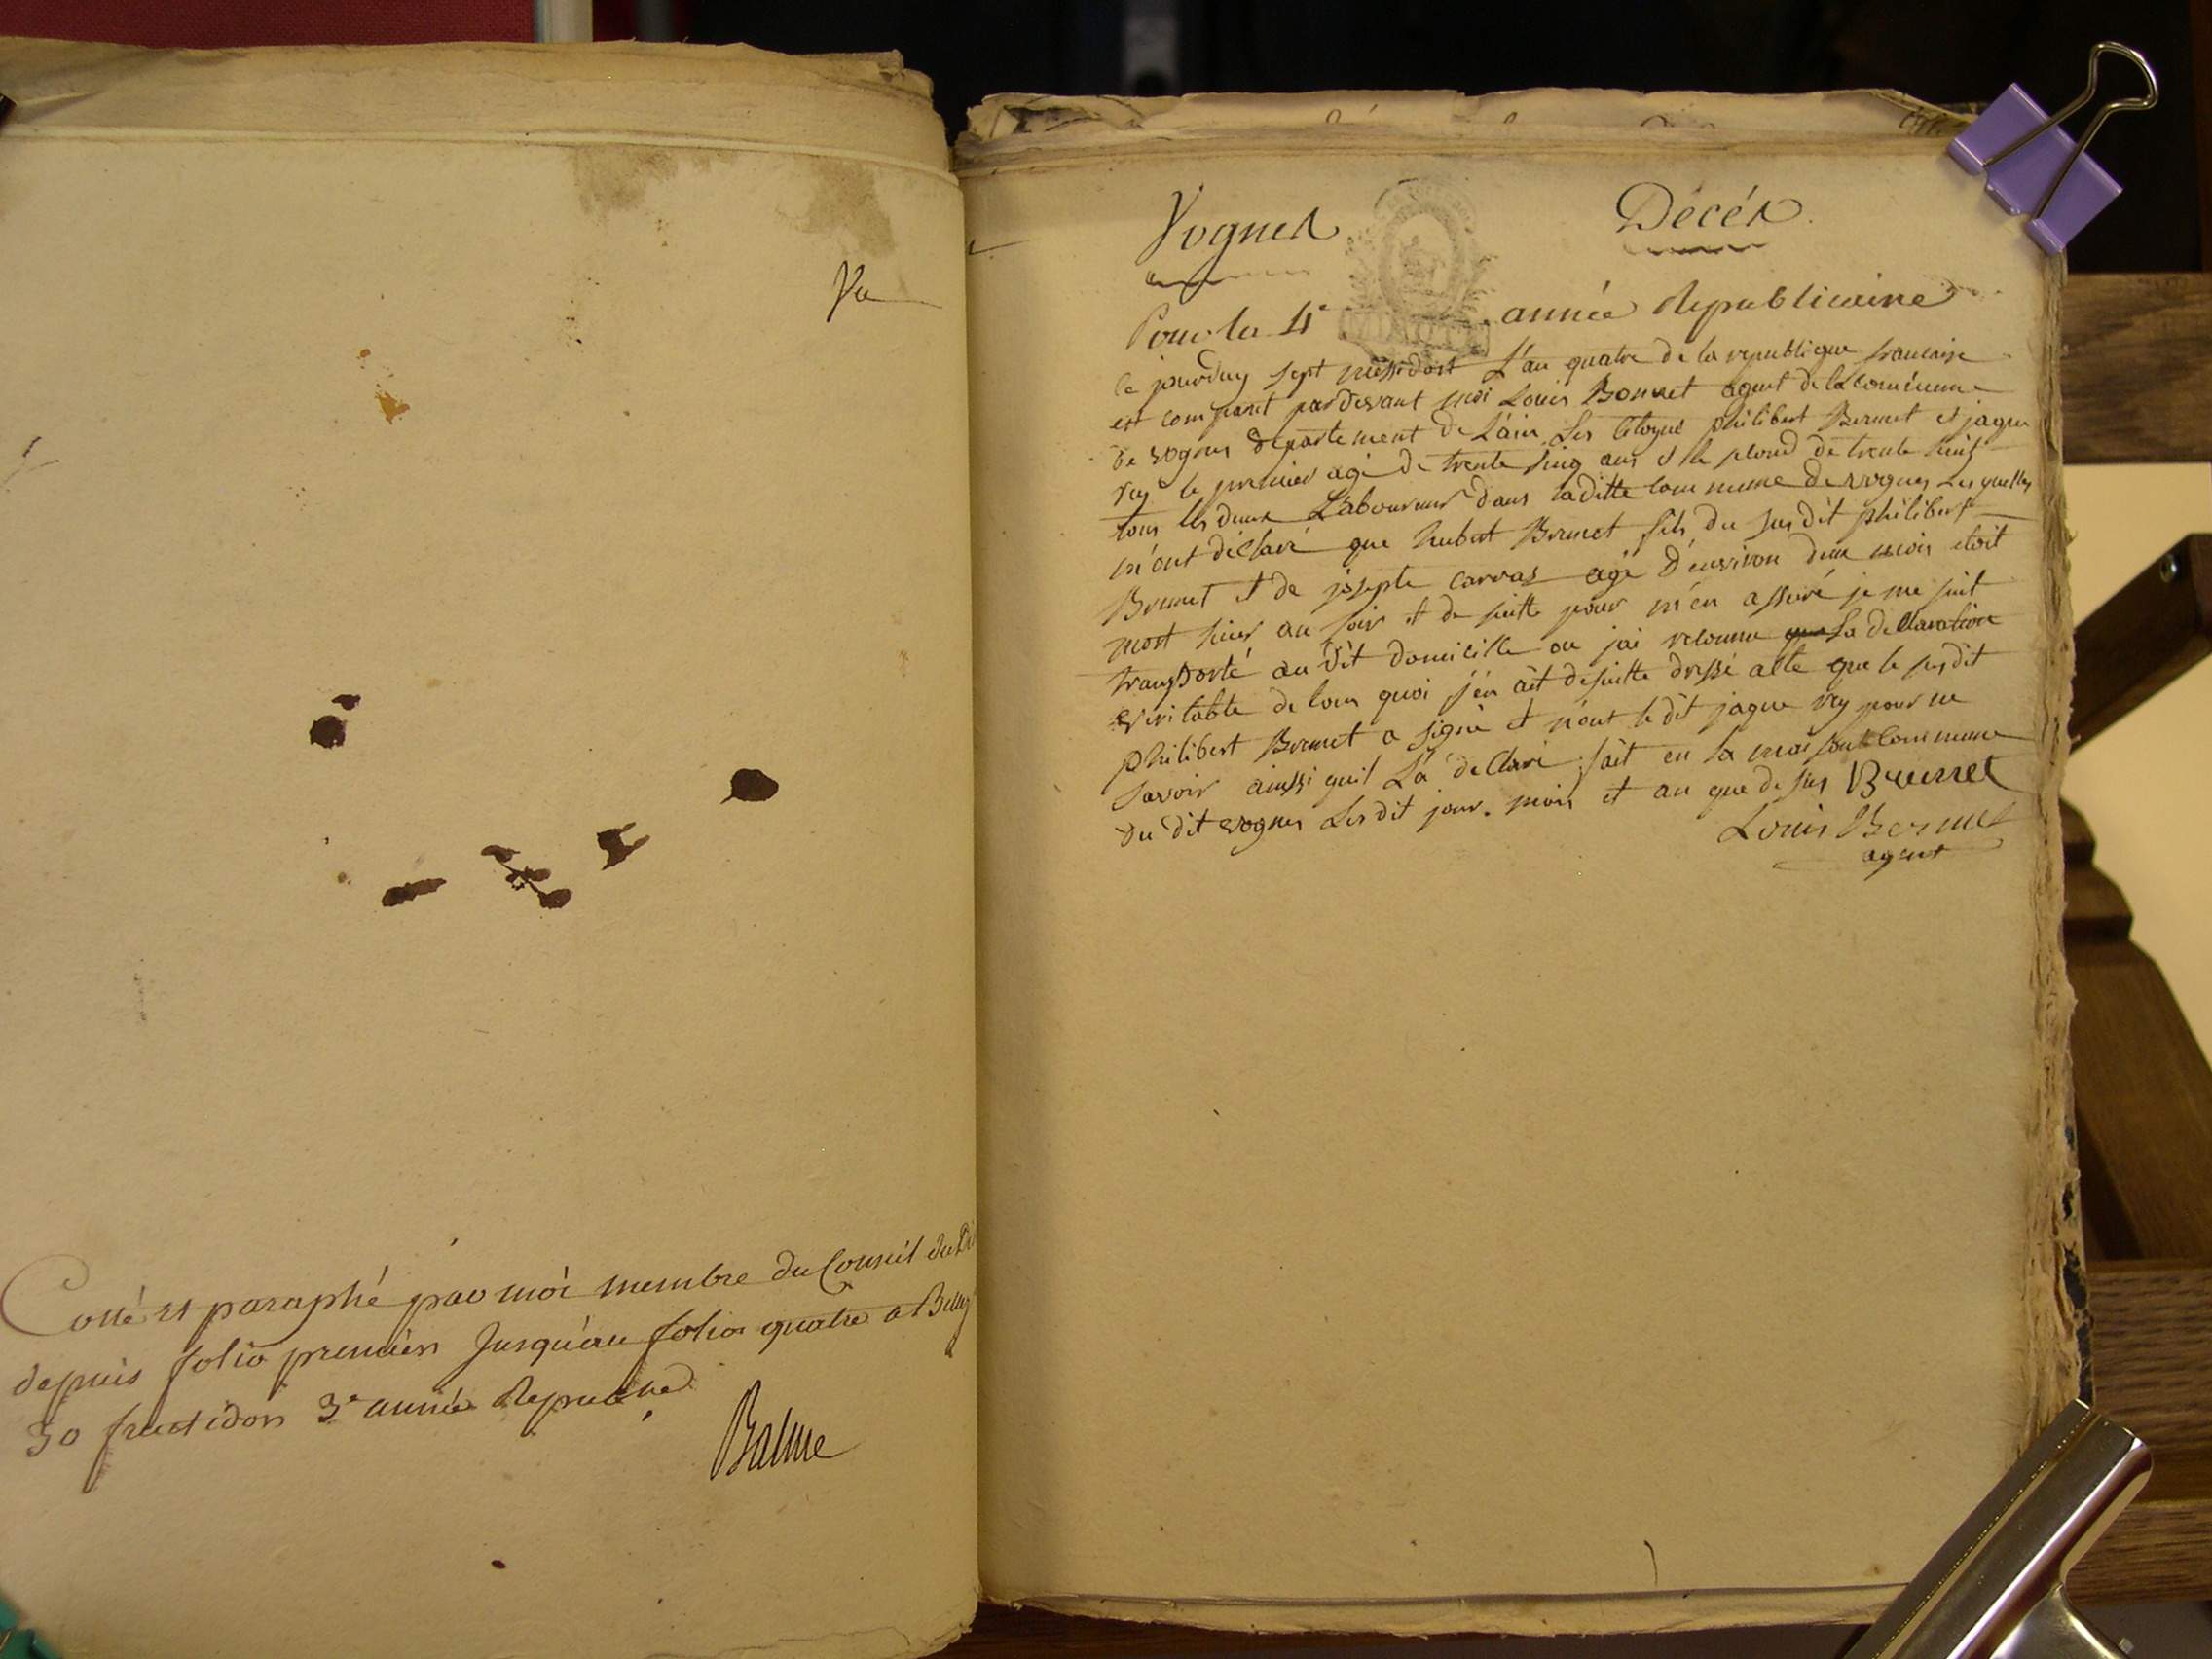 Vu
Cotté et paraphé par moi membre du Conseil du Di
depuis folio premier Jusqu'au folio quatre a Belley
30 fructidor 3e année Repucne
Balme
Vognes Décés
Pour la 4e année Republicaine
ce jourduy sept messidort L'an quatre de la republique francaise
est comparut pardevant moi Louis Bonnet agent de la commune
de vognes departement de L'ain Les citoyens philibert Brunet et jaque
rey le premier agé de trente sinq ans et le second de trente huit
tous les deux Laboureur dans laditte commune de vognes Les quelles
m'ont déclaré que hubert Brunet fils du susdit philibert
Brunet et de josepte carvas agé d'environ deux mois etoit
mort hier au soir et de suitte pour m'en assuré je me suit
transporté au dit domicille ou jai reconnu que La declaration
veritable de tous quoi j'en ait desuitte dressé acte que le susdit
philibert Brunet a signé et non le dit jaque rey pour ne
savoir ainssi quil L'a declaré fait en la maison commune
du dit vognes Lesdit jour. mois et an que desus Brunet
Louis Bonnet
agent